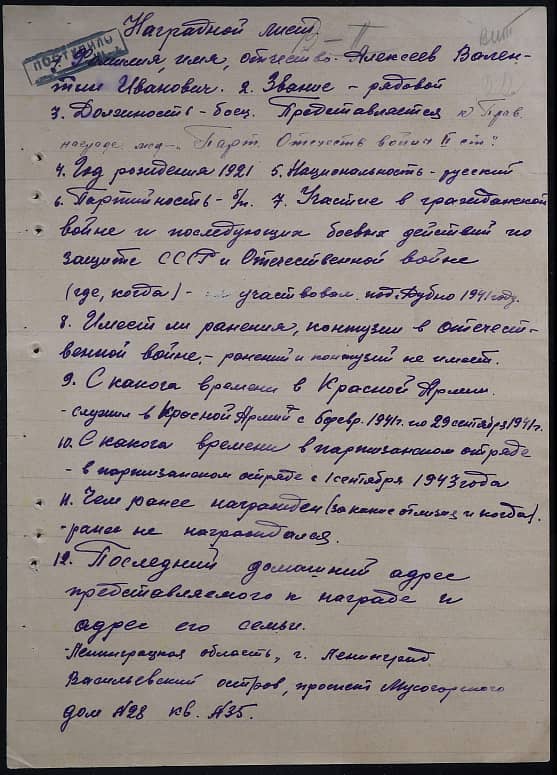 Наградной лист
ПОСТУПИЛО
1. Фамилия, имя, отчество - Алексеев Вален-
тин Иванович. 2. Звание - рядовой
3. Должность - боец. Представляется к Прав.
награде мед- "Парт. Отечеств войны II ст".
4. Год рождения 1921 5. Национальность - русский
6. Партийность - б/п. 7. Участие в гражданской
войне и последующих боевых действий по
защите СССР и Отечественной войне
(где, когда) - участвовал под Дубно 1941 году.
8. Имеет ли ранения, контузии в отечест-
венной войне, - ранений и контузий не имеет.
9. С какога времени в Красной Армии.
- служил в Красной Армий с 6 февр. 1941г. по 29 сентября 1941г.
10. С какога времени в партизанском отряде
- в партизанском отряде с 1 сентября 1943 года
11. Чем ранее награжден (за какие отличия и когда).
- ранее не награждался.
12. Последний домашний адрес
представляемого к награде и
адрес его семьи.
- Ленинградская область, г. Ленинград
Васильевский остров, проспект Мусоргского
дом №28 кв. №35.